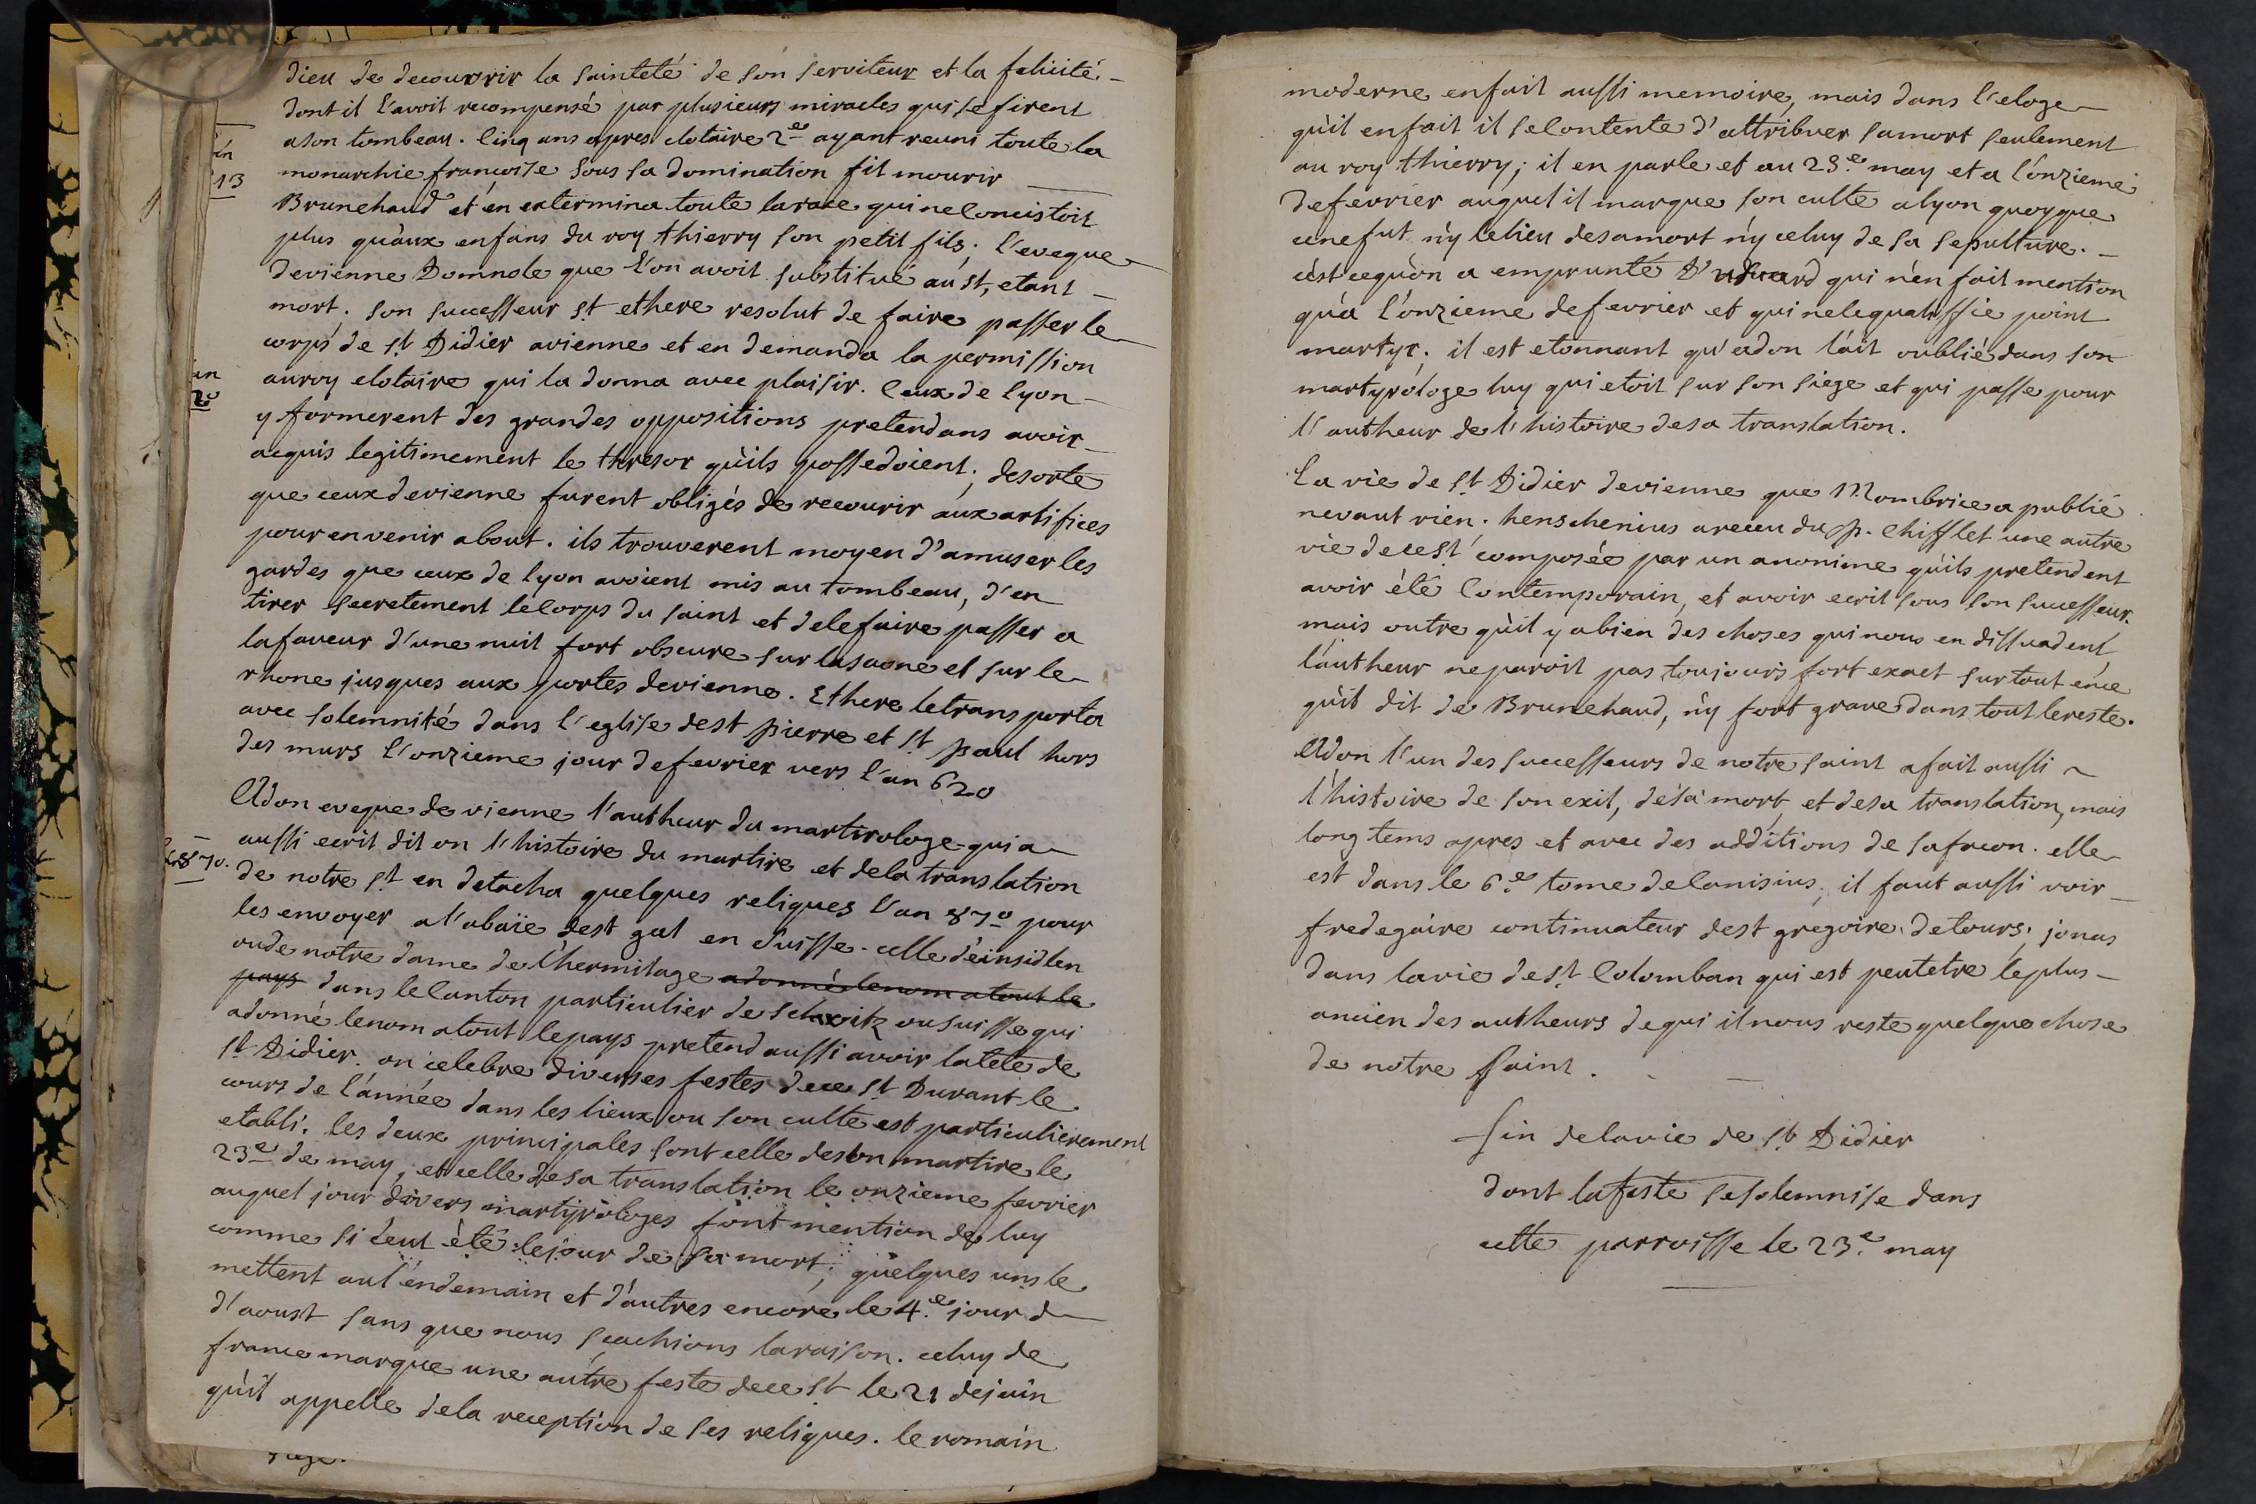 dieu de decouvrir la sainteté de son serviteur et la felicité
dont il l'avoit recompensé par plusieurs miracles qui se firent
a son tombeau. Cinq ans apres clotaire 2e ayant reuni toute la
monarchie françoise sous sa domination fit mourir
Brunehaud et en extermina toute la race qui ne Koncistoit
plus qu'aux enfans du roy thierry son petit fils. l'eveque
de vienne Domnole que l'on avoit substitué au st, etant
mort. son successeur st ethere resolut de faire passer le
corps de st Didier a vienne et en demanda la permission
au roy clotaire qui la donna avec plaisir. Ceux de lyon
y formerent des grandes oppositions pretendans avoir
acquis legitimement le thresor qu'ils possedoient, de sorte
que ceux de vienne furent obligés de recourir aux artifices
pour en venir a bout. ils trouverent moyen d'amuser les
gardes que ceux de lyon avoient mis au tombeau, d'en
tirer secretement le Corps du saint et de le faire passer a
la faveur d'une nuit fort obscure sur la saone et sur le
rhone jusques aux portes de vienne. Ethere le transporta
avec solemnité dans l'eglise de st pierre et st paul hors
des murs l'onzieme jour de fevrier vers l'an 620
Adon eveque de vienne l'autheur du martirologe qui a
aussi ecrit dit on l'histoire du martire et de la translation
de notre st en detacha quelques reliques l'an 870 pour
les envoyer a l'abaïe de st gal en Suisse. celle d'einsidlen
ou de notre dame de l'hermitage a donné le nom a tout le
pays dans le Canton particulier de schwitz ou suisse qui
a donné le nom a tout le pays pretend aussi avoir la tete de
st Didier. on celebre diverses festes de ce st Durant le
cours de l'année dans les lieux ou son culte est particulierement
etabli. les deux principales sont celle de son martire le
23e de may, et celle de sa translation le onzieme fevrier
auquel jour divers martyrologes font mention de luy
comme si c'eut été le jour de sa mort; quelques uns le
mettent au l'endemain et d'autres encore le 4e jour d
d'aoust sans que nous scachions la raison. celuy de
france marque une autre feste de ce st le 21 de juin
qu'il appelle de la reception de ses reliques. le romain
moderne en fait aussi memoire, mais dans l'eloge
qu'il en fait il se Contente d'attribuer sa mort seulement
au roy thierry; il en parle et au 23e may et a l'onzieme
de fevrier auquel il marque son culte a lyon quoyque
ce ne fut ny le lieu de sa mort ny celuy de sa sepulture.
c'est ce qu'on a emprunté D'usuard qui n'en fait mention
qu'a l'onzieme de fevrier et qui ne le qualiffie point
martyr. il est etonnant qu'adon l'ait oublié dans son
martyrologe luy qui etoit sur son siege et qui passe pour
l'autheur de l'histoire de sa translation.
La vie de st Didier de vienne que Mombrice a publié
ne vaut rien. henschenius a receu du p. Chifflet une autre
vie de ce st composée par un anonime qu'ils pretendent
avoir été Contemporain, et avoir ecrit sous son successeur.
mais outre qu'il y a bien des choses qui nous en dissuadent
l'autheur ne paroit pas toujours fort exact sur tout en ce
qu'il dit de Brunehaud, n'y fort grave dans tout le reste.
Adon l'un des successeurs de notre saint a fait aussi
l'histoire de son exil, de sa mort, et de sa translation, mais
long tems apres et avec des additions de sa facon. elle
est dans le 6e tome de Canisius, il faut aussi voir
fredegaire continuateur de st gregoire de tours; jonas
dans la vie de st Colomban qui est peutetre le plus
ancien des autheurs de qui il nous reste quelque chose
de notre saint.
fin de la vie de st Didier
dont la feste se solemnise dans
cette parroisse le 23e may